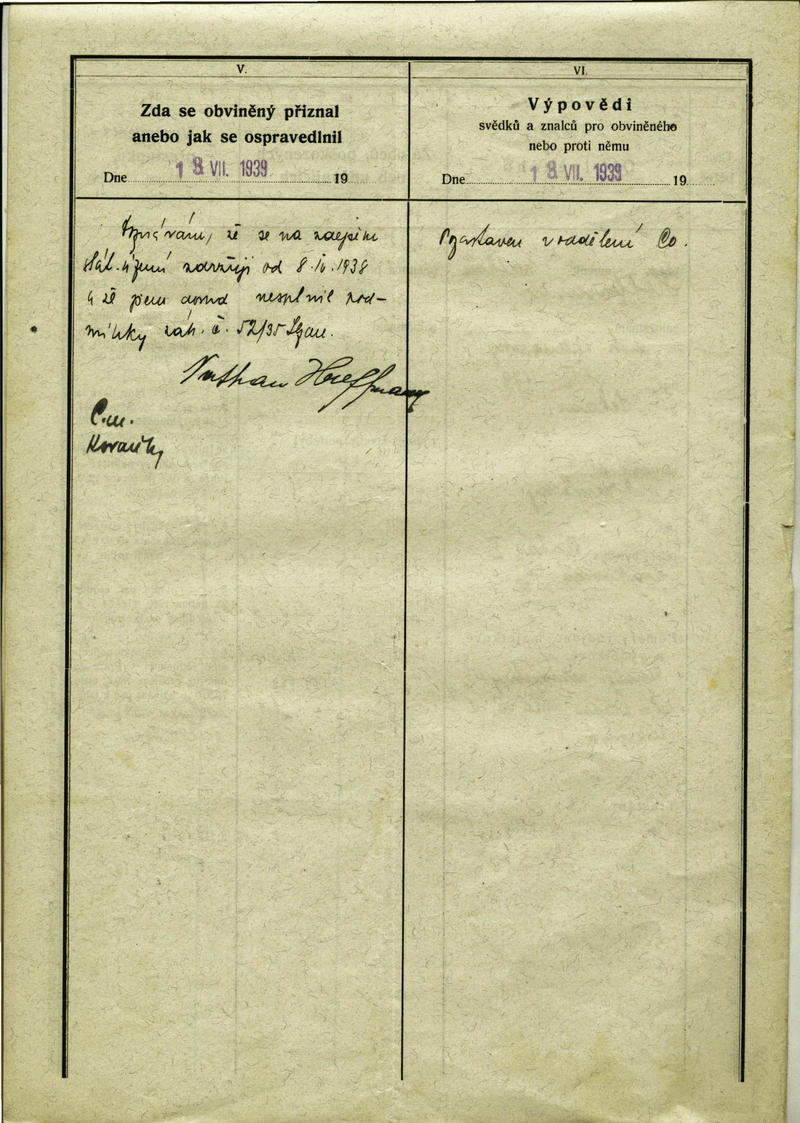 V.
Zda se obviněný přiznal
anebo jak se ospravedlnil
Dne 18 VII. 1939 19
Doznávám, že se na zdejším
stát. území zdržuji od 8. IV. 1938
a že jsem dosud nesplnil pod-
mínky zák. č. 52/35 Sb.
Nathan Hoffmann
C.m.
VI.
Výpovědi
svědků a znalců pro obviněného
nebo proti němu
Dne 18 VII. 1939 19
Pozastaven v oddělení Co.